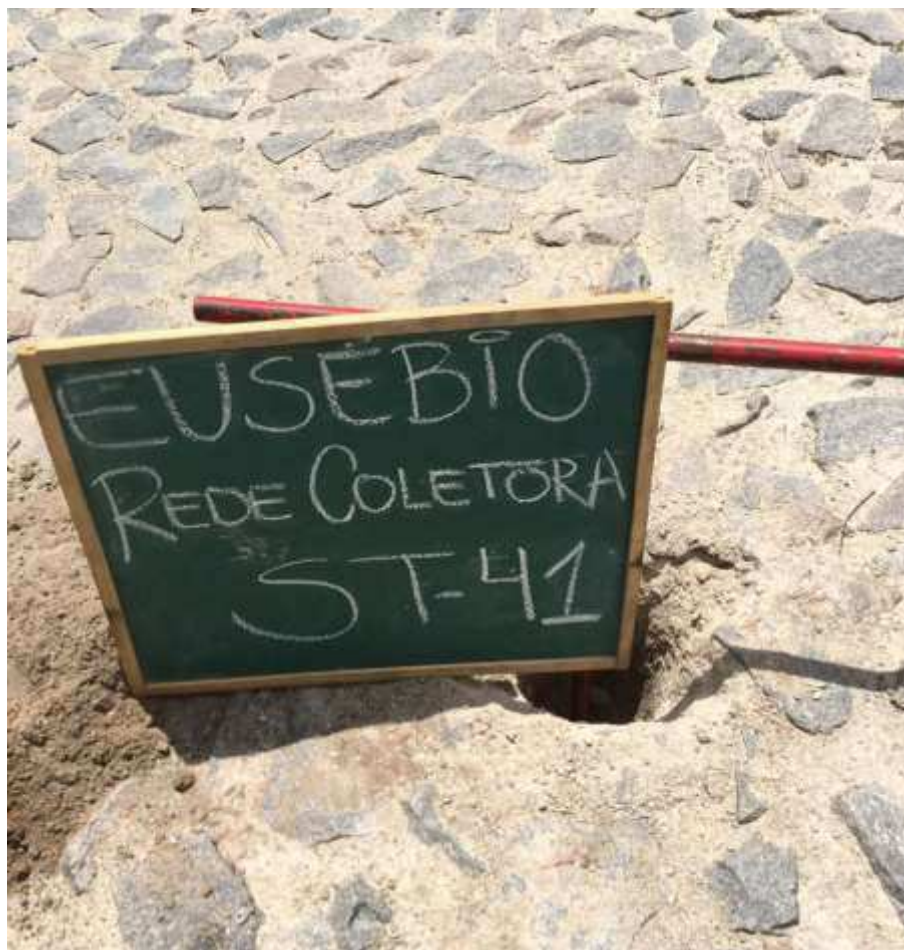 EUSÉBIO
REDE COLETORA
ST-41